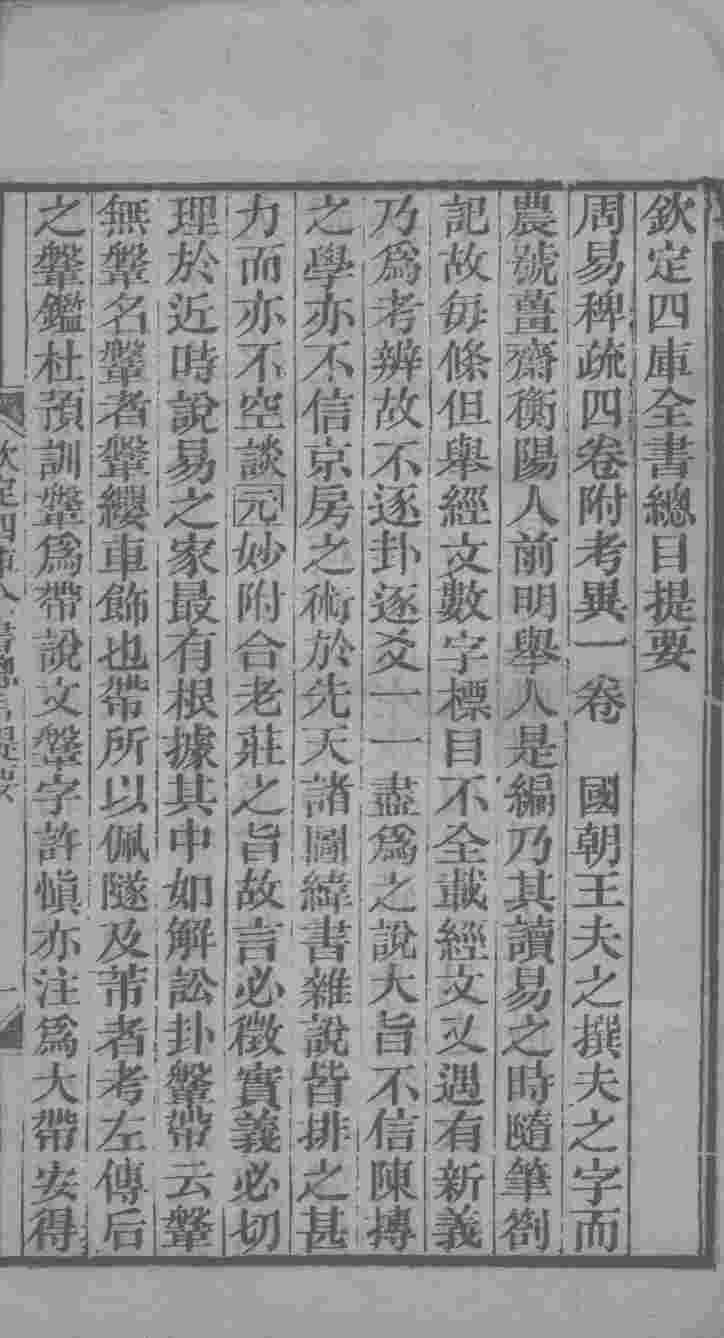 欽定四庫全書總目提要
周易稗疏四卷附考異一卷　國朝王夫之撰夫之字而
農號薑齋衡陽人前明舉人是編乃其讀易之時隨筆劄
記故每條但舉經文數字標目不全載經文又遇有新義
乃爲考辨故不逐卦逐爻一一盡爲之說大旨不信陳摶
之學亦不信京房之術於先天諸圖緯書雜說皆排之甚
力而亦不空談元妙附合老莊之旨故言必徵實義必切
理於近時說易之家最有根據其中如解訟卦鞶帶云鞶
無鞶名鞶者鞶纓車飾也帶所以佩隧及芾者考左傳后
之鞶鑑杜預訓鞶爲帶說文鞶字許慎亦注爲大帶安得